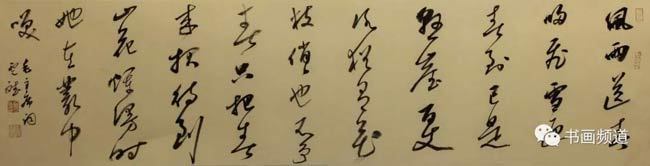 风雨送春
归飞雪迎
春到已是
悬崖百
丈冰犹有花
枝俏也不争
春只把春
来报待到
山花烂漫时
她在丛中
笑
毛主席词
书画频道